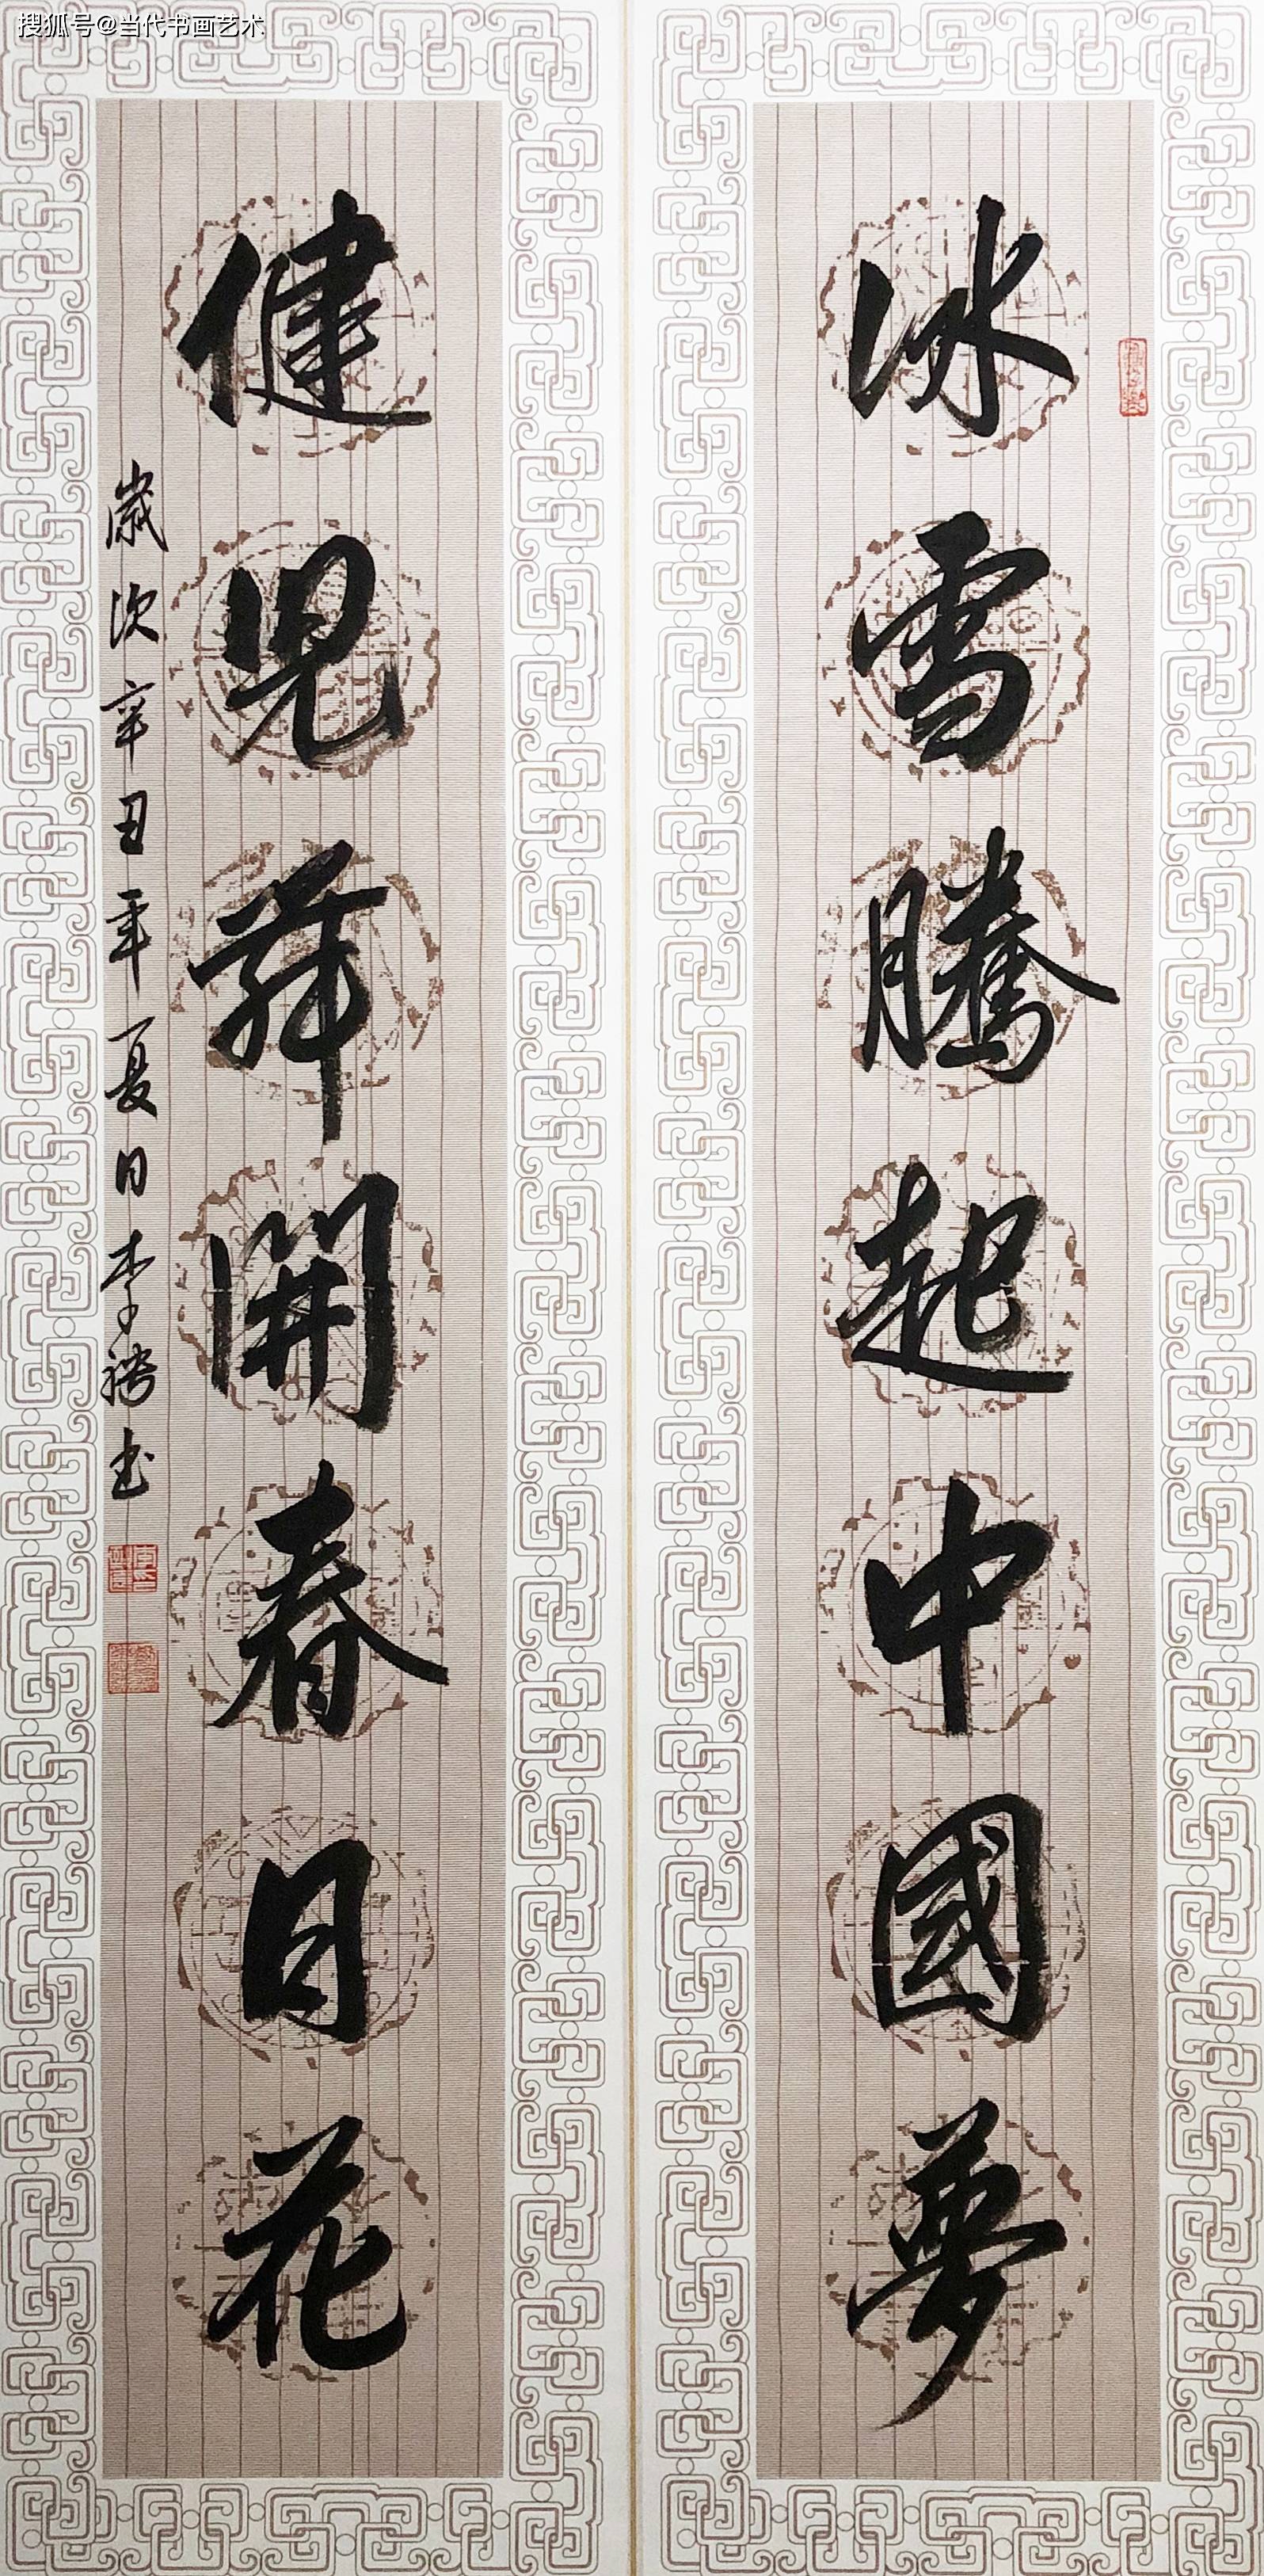 搜狐号@当代书画艺术
冰雪騰起中國夢
健児舞開春日花
歲次辛丑年夏日李
书